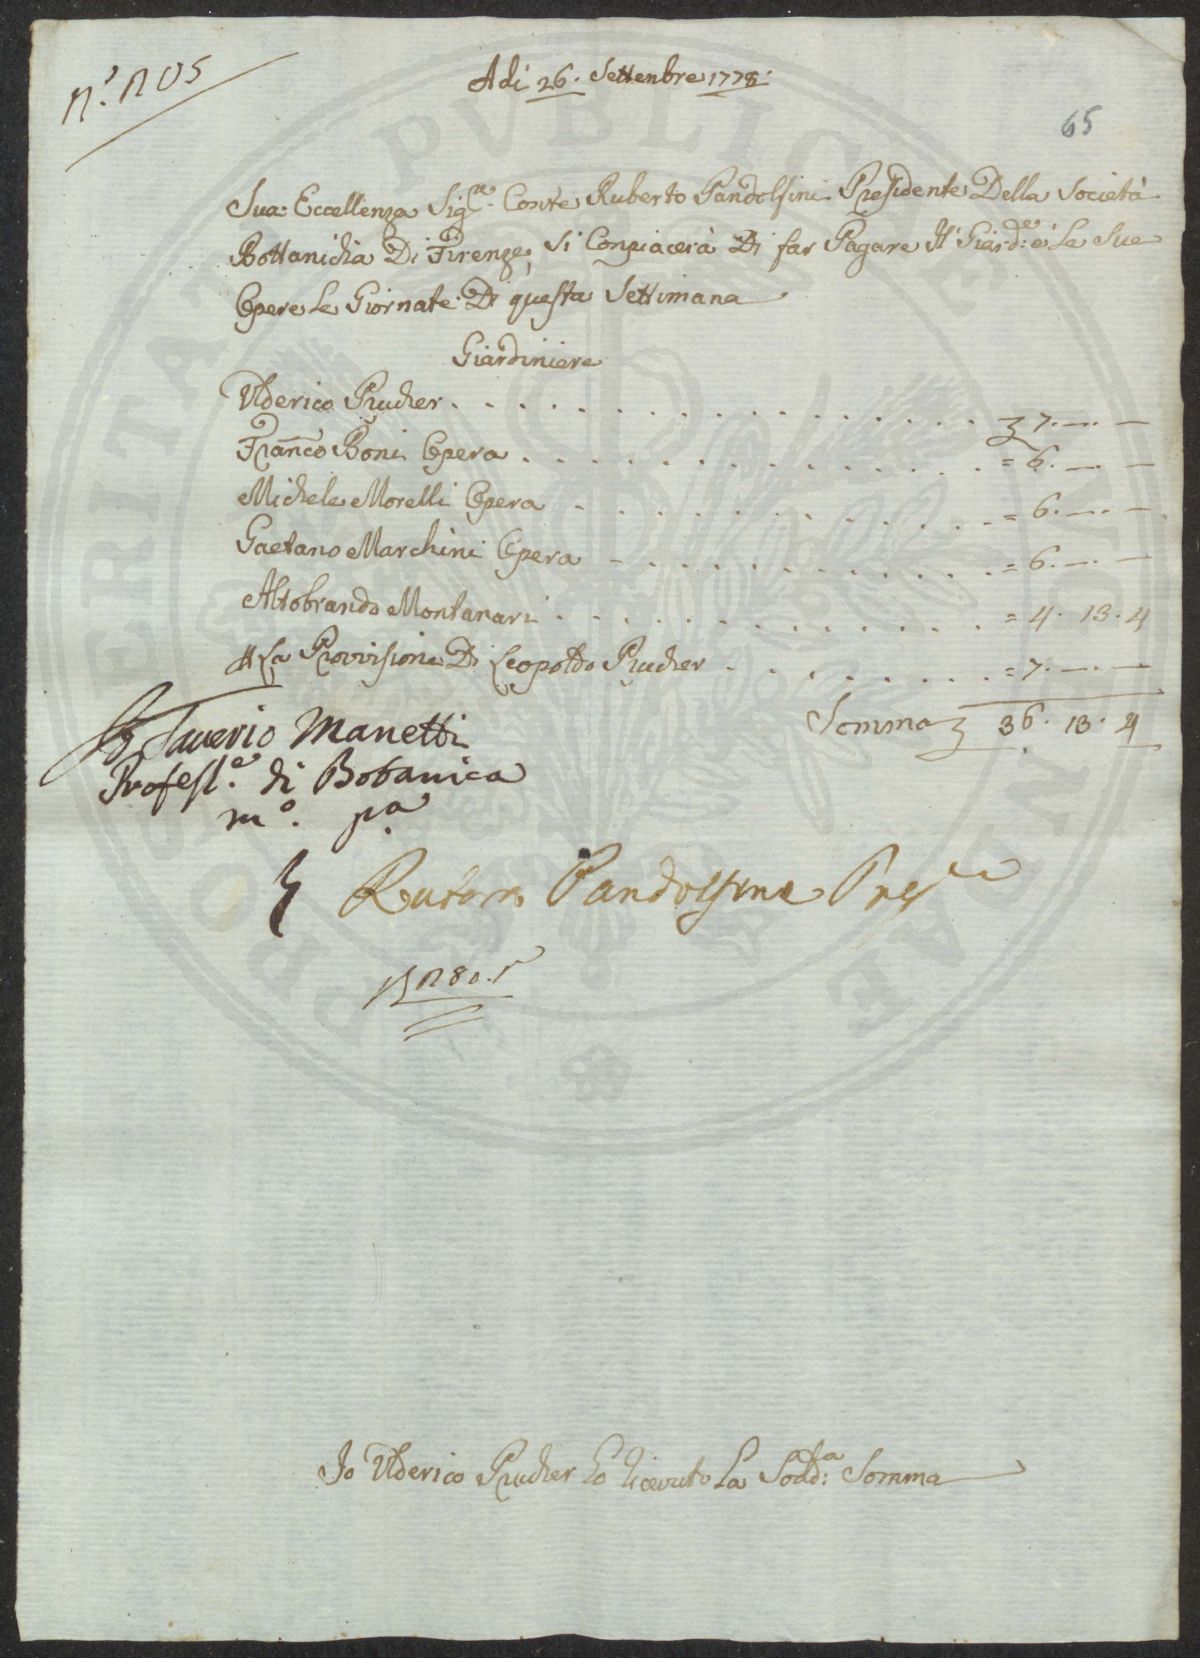 N.° 1205
Adi 26. Settenbre 1778.
65
Sua Eccellenza Sig.re Conte Ruberto Pandolfini Presidente Della Società
Bottanicha Di Firenze, Si Conpiacerà Di far Pagare Il Giard.e e Le Sue
Opere Le Giornate Di questa Settimana
Giardiniere
Ulderico Prucher . . . . . . . . . . . . . . . 7. —. —
Franco Boni Opera . . . . . . . . . . . . . = 6. —. —
Michele Morelli Opera . . . . . . . . . . . = 6. —. —
Gaetano Marchini Opera - . . . . . . . . . = 6. —. —
Altobrando Montanari . . . . . . . . . . . = 4. 13. 4
La Provisione Di Leopoldo Prucher . . . . . . . = 7. —. —
Somma 36. 13. 4
Saverio Manetti
Profess.e di Botanica
m.o p.a
Ruberto Pandolfini Pres.te
Io Ulderico Prucher ho ricevuto La Sodd.a Somma